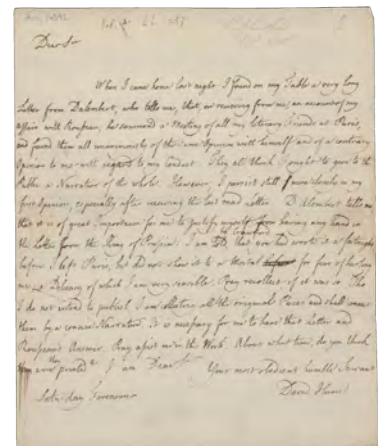 Dear Sr
When I came home last night I found on my Table a very long
Letter from Dalembert, who tells me, that, on receiving from me an account of my
affair with Rousseau, he summond a Meeting of all my literary Friends at Paris,
and found them all unanimously of the same Opinion with himself and of a contrary
Opinion to me with regard to my Conduct. They all think I ought to give to the
Public a Narrative of the whole. However, I persist still more closely in my
first Opinion, especially after receiving the last mad Letter. D'Alembert tells me
that it is of great Importance for me to justify myself from having any hand in
the Letter from the King of Prussia. I am told by Crawford that you had wrote it a fortnight
before I left Paris, but did not show it to a Mortal for fear of hurting
me, a Delicacy of which I am very sensible. Pray recollect if it was so. Tho
I do not intend to publish, I am collecting all the original Pieces and shall connect
them by a concise Narrative. It is necessary for me to have that Letter and
Rousseau's Answer. Pray assist me in this Work. About what time, do you think
were they printed? I am Dear Sr
Your most obedient humble Servant
Saturday Forenoon
David Hume